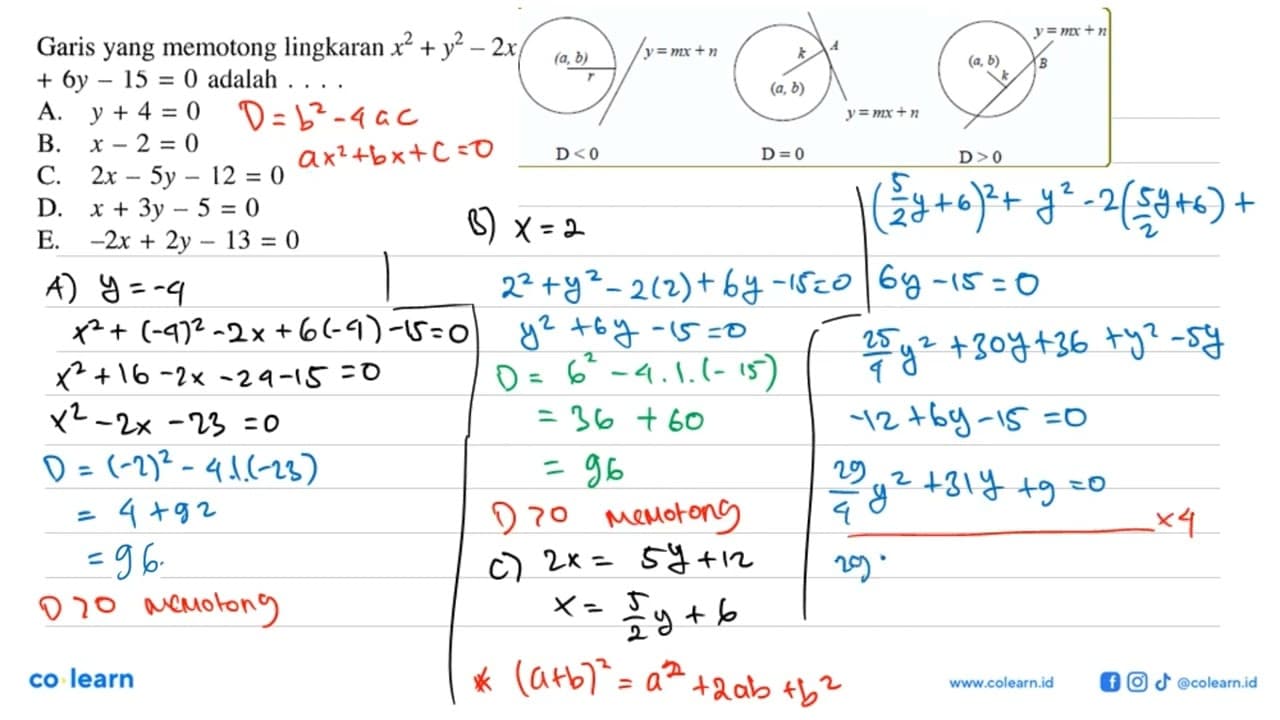 Garis yang memotong lingkaran x² + y² − 2x
+ 6y − 15 = 0 adalah . . . .
A. y + 4 = 0
B. x − 2 = 0
C. 2x − 5y − 12 = 0
D. x + 3y − 5 = 0
E. −2x + 2y − 13 = 0
D = b² - 4ac
ax² + bx + c = 0
(a, b)
r
y = mx + n
D < 0
k
A
(a, b)
y = mx + n
D = 0
y = mx + n
(a, b)
k
B
D > 0
A) y = -4
x² + (-4)² - 2x + 6(-4) - 15 = 0
x² + 16 - 2x - 24 - 15 = 0
x² - 2x - 23 = 0
D = (-2)² - 4.1.(-23)
= 4 + 92
= 96.
D > 0 memotong
B) x = 2
2² + y² - 2(2) + 6y - 15 = 0
y² + 6y - 15 = 0
D = 6² - 4.1.(-15)
= 36 + 60
= 96
D > 0 memotong
C) 2x = 5y + 12
x = 5/2 y + 6
* (a+b)² = a² + 2ab + b²
(5/2 y + 6)² + y² - 2(5/2 y + 6) +
6y - 15 = 0
25/4 y² + 30y + 36 + y² - 5y
-12 + 6y - 15 = 0
29/4 y² + 31y + 9 = 0
x 4
29.
co learn
www.colearn.id
@colearn.id